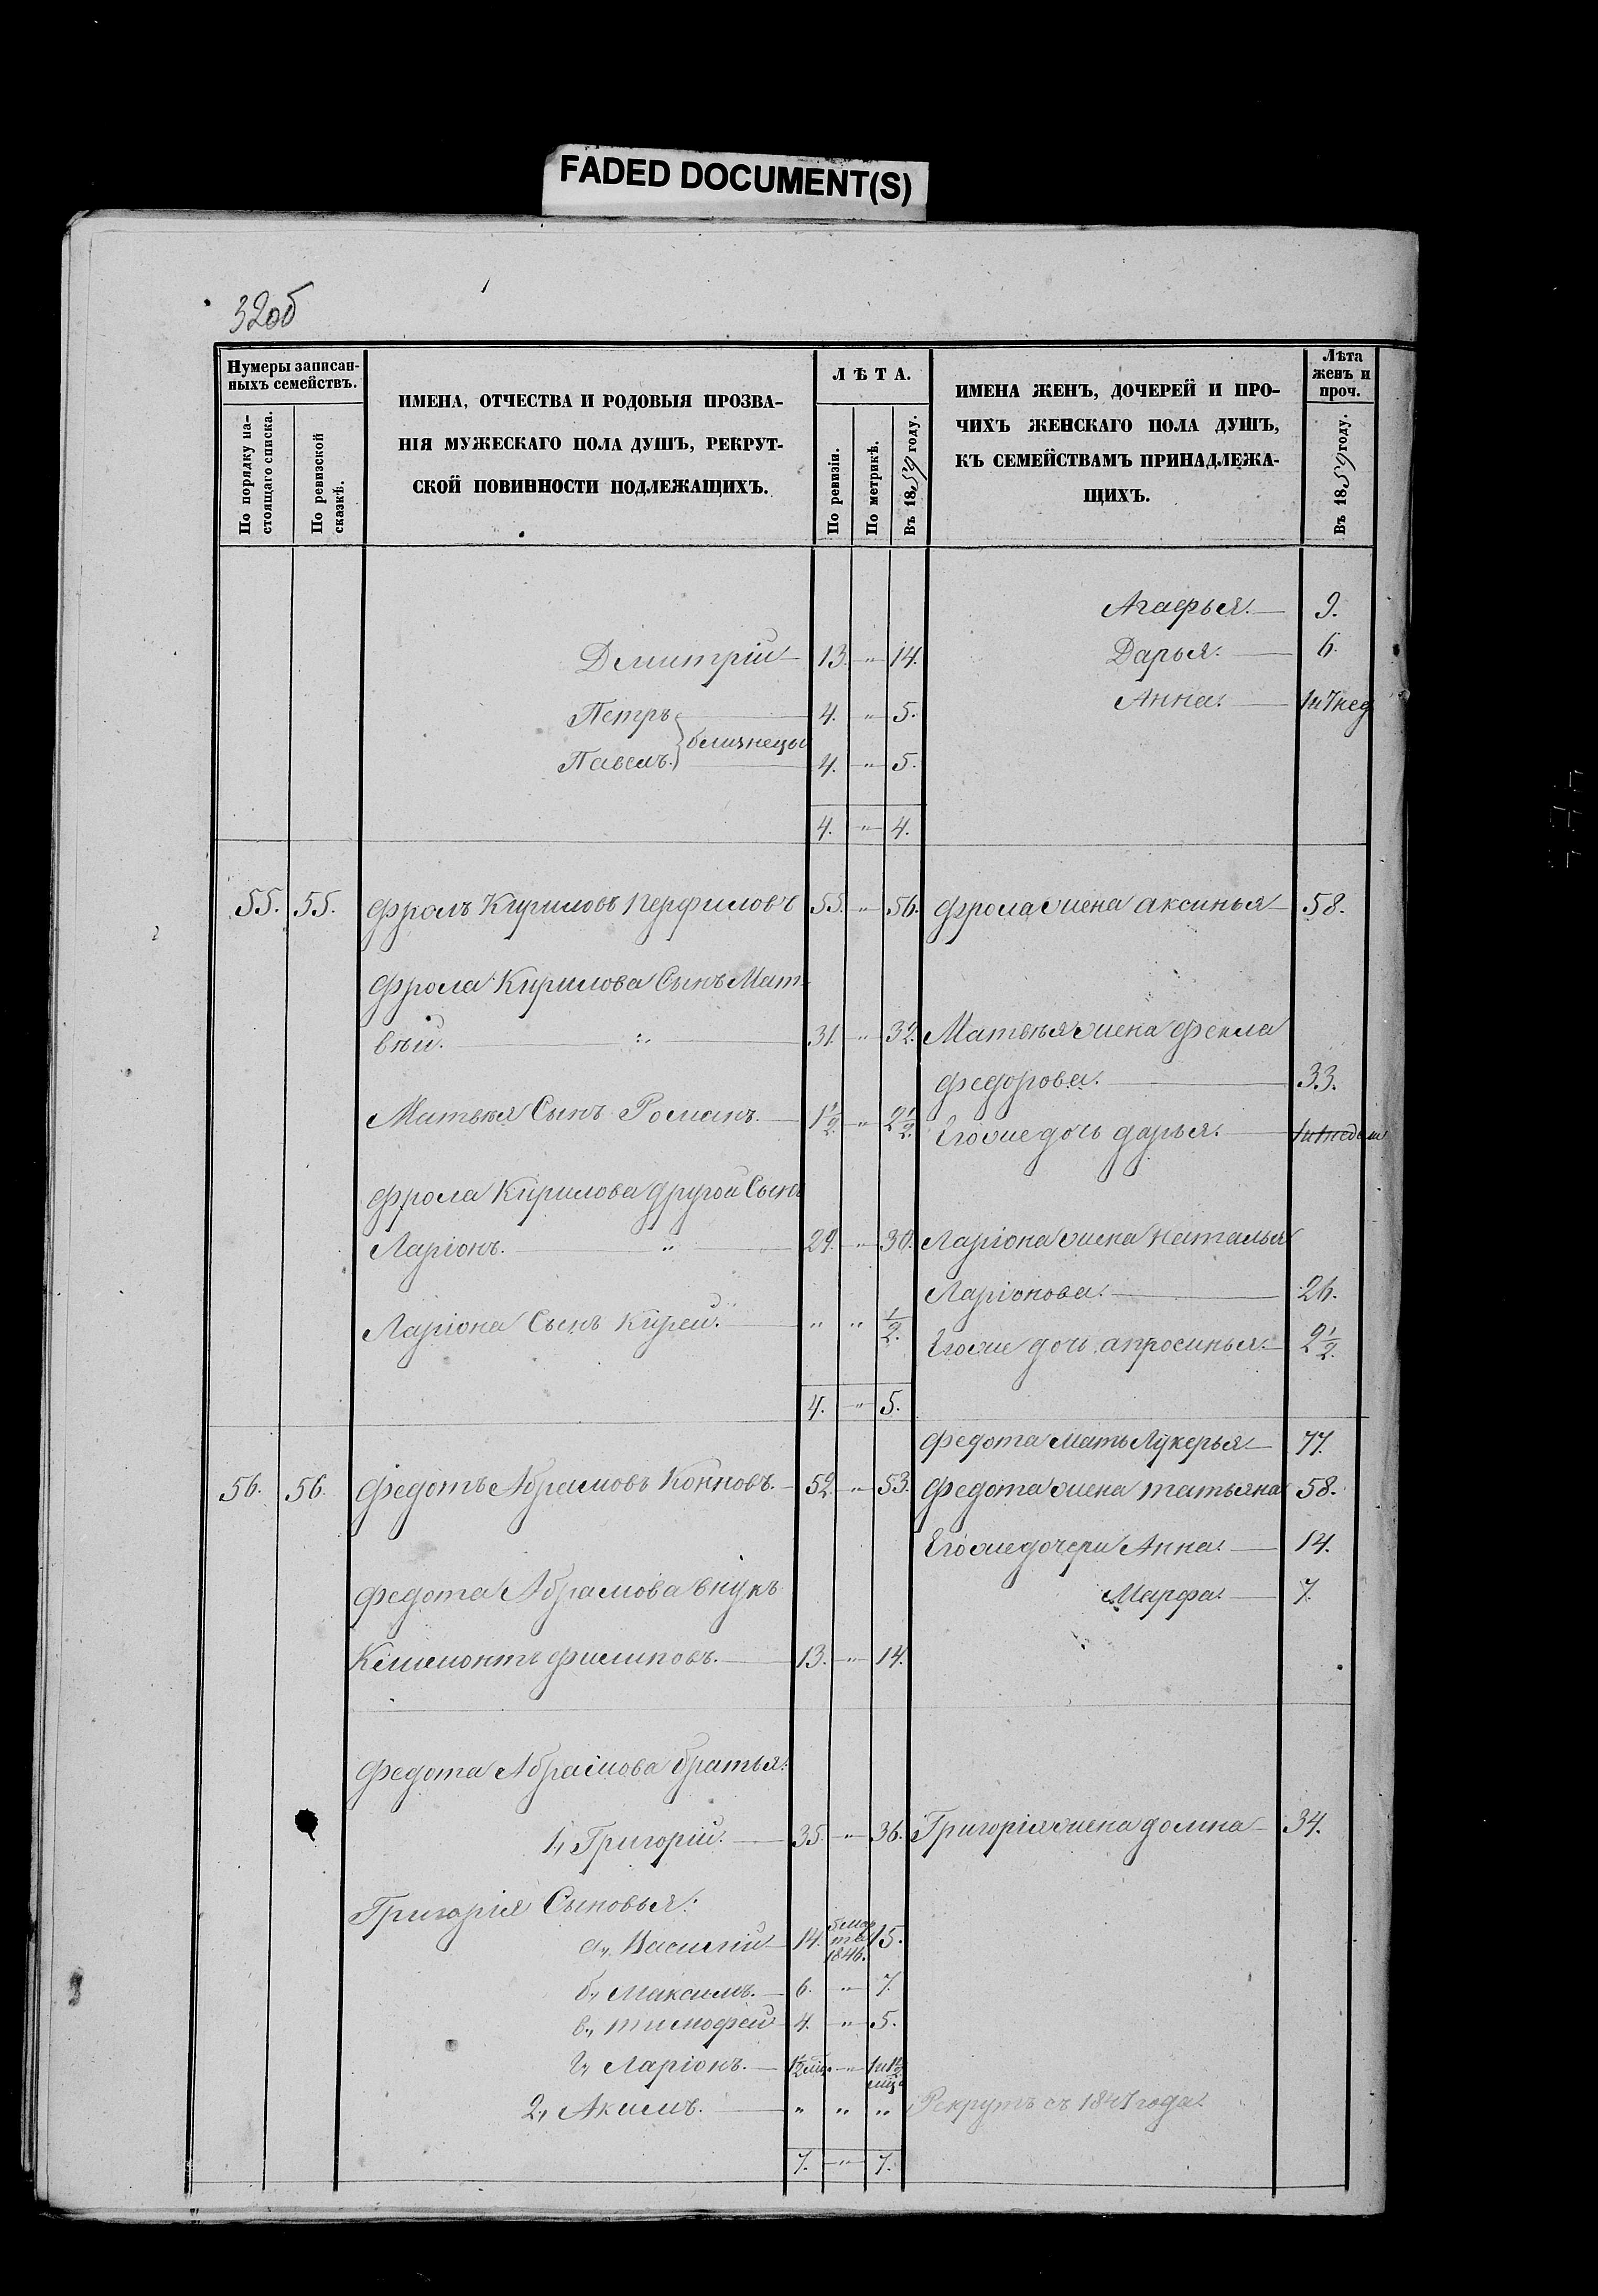 FADED DOCUMENT(S)
32об
Нумеры записан-
ныхъ семействъ.
По порядку на-
стоящаго списка.
По ревизской
сказкѣ.
ИМЕНА, ОТЧЕСТВА И РОДОВЫЯ ПРОЗВА-
НІЯ МУЖЕСКАГО ПОЛА ДУШЪ, РЕКРУТ-
СКОЙ ПОВИННОСТИ ПОДЛЕЖАЩИХЪ.
ЛѢТА.
По ревизіи.
По метрикѣ.
Въ 1859 году.
ИМЕНА ЖЕНЪ, ДОЧЕРЕЙ И ПРО-
ЧИХЪ ЖЕНСКАГО ПОЛА ДУШЪ,
КЪ СЕМЕЙСТВАМЪ ПРИНАДЛЕЖА-
ЩИХЪ.
Лѣта
женъ и
проч.
Въ 1859 году.
Агафья. 9.
Дмитрій 13. " 14. Дарья. 6.
Анна. 1и7нед
Петръ 4. " 5.
близнецы
Павелъ. 4. " 5.
4. " 4.
55. 55. Фролъ Кириловъ Перфиловъ 55. " 56. Фрола жена аксинья 58.
Фрола Кирилова Сынъ Мат-
вѣй. " 31. " 32. Матвѣя жена Фекла
Федорова. 33.
Матвѣя Сынъ Романъ. 1 1/2. " 2 1/2. Егоже дочь дарья.
Фрола Кирилова другой Сынъ
Ларіонъ. " 29. " 30. Ларіона жена Наталья
Ларіонова. 26.
Ларіона Сынъ Кирей. " " 1/2. Егоже дочь апросинья. 2 1/2.
4. " 5.
Федота мать Лукерья 77.
56. 56. Федотъ Абрамовъ Конновъ. 52. " 53. Федота жена татьяна 58.
Егоже дочери Анна. 14.
Федота Абрамова внукъ
Марфа. 7.
Климонтъ филиповъ. 13. " 14.
Федота Абрамова братья:
1, Григорій. 35. " 36. Григорія жена домна 34.
Григорія Сыновья:
а, Василій 14. 1846. 15.
б, Максимъ. 6. " 7.
в, тимофей 4. " 5.
г, Ларіонъ. 1 1/2 мѣс. " 1и1 1/2
мѣс
2, Акимъ. " " " Рекрутъ съ 1847 года.
7. " 7.